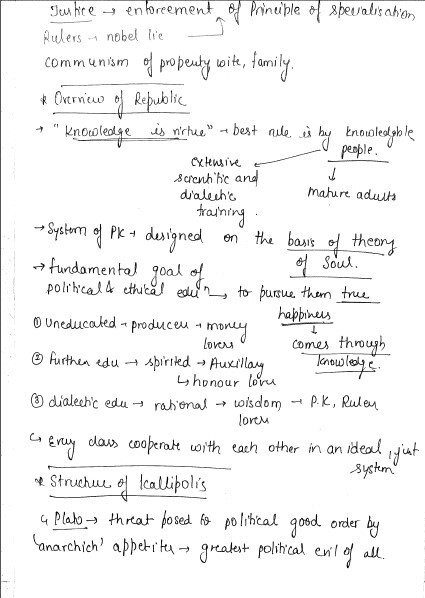 Justice → enforcement of Principle of specialisation
Rulers → nobel lie
communism of property wife, family.
* Overview of Republic
→ "Knowledge is virtue" → best rule is by knowledgble people.
extensive scientific and dialectic training.
↓
mature adults
→ System of PK → designed on the basis of theory of Soul.
→ fundamental goal of political & ethical eduⁿ → to pursue them true happiness
↓
comes through knowledge.
① Uneducated → producer → money lovers
② further edu → spirited → Auxillary
↳ honour lover
③ dialectic edu → rational → wisdom lovers → P.K, Ruler
↳ Every class cooperate with each other in an ideal, just system
* Structure of Kallipolis
↳ Plato → threat posed to political good order by
'anarchich' appetites → greatest political evil of all.